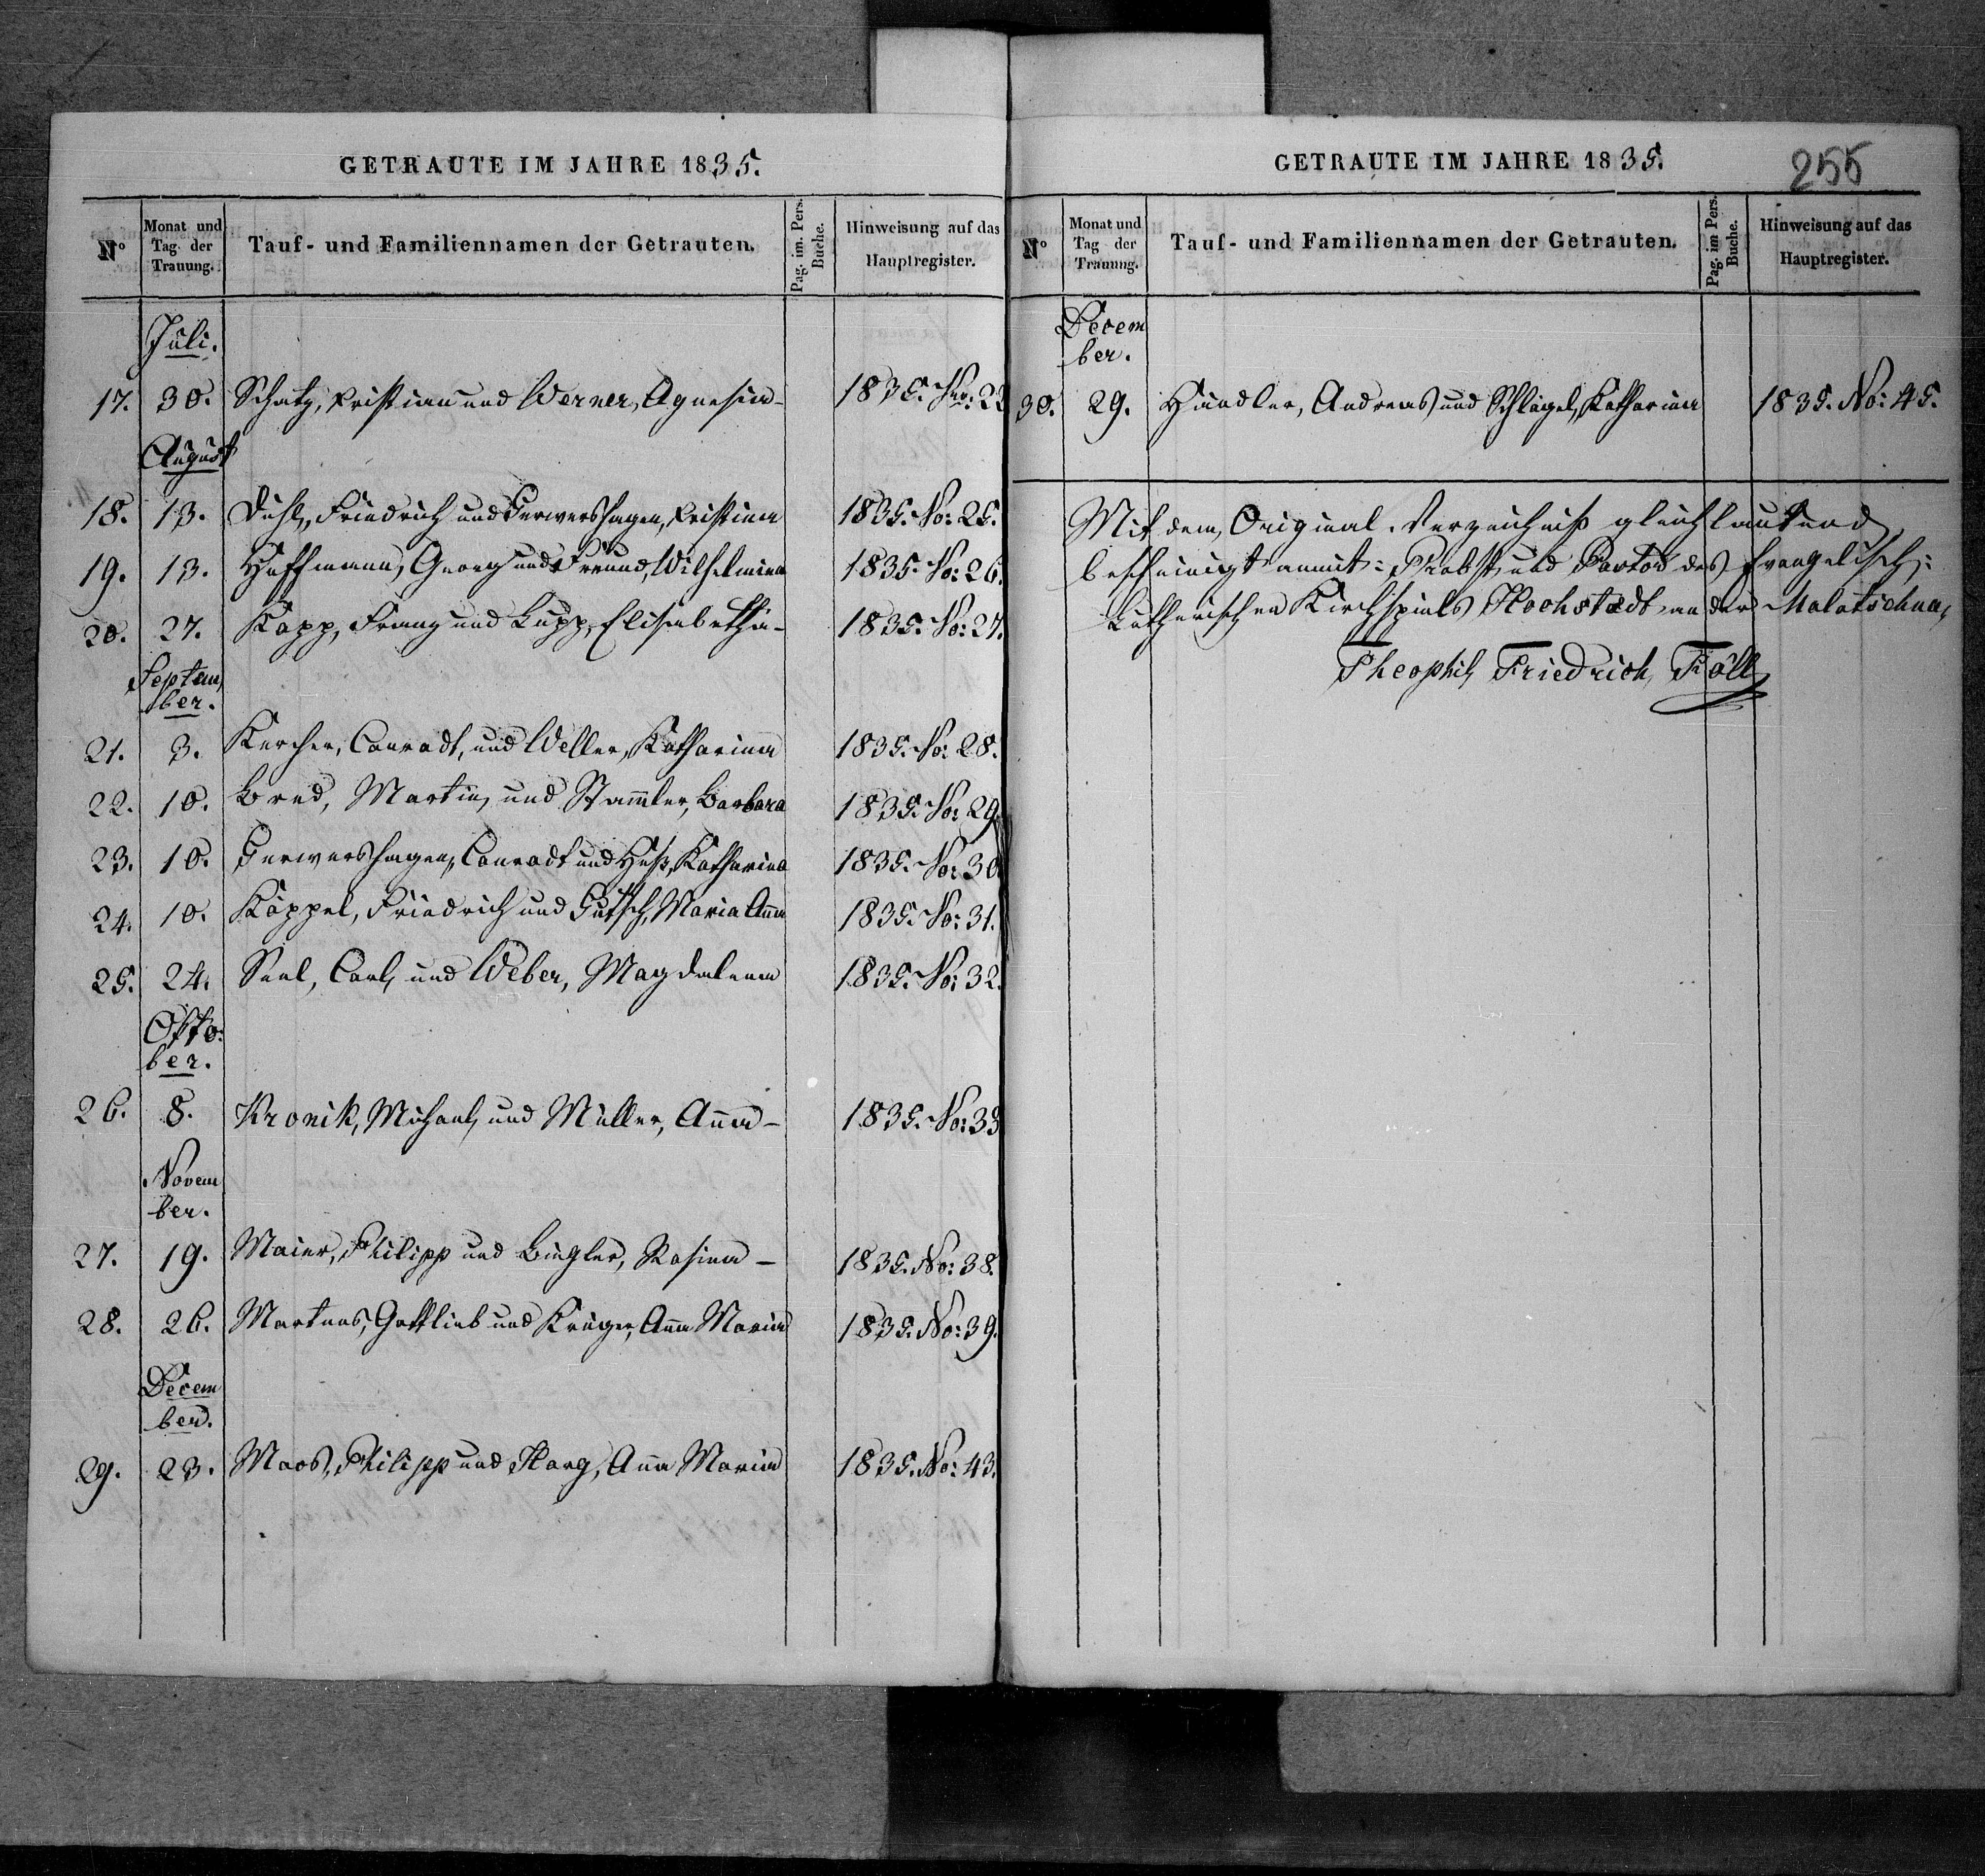 GETRAUTE IM JAHRE 1835.
Nº Monat und Tag der Trauung. Tauf- und Familiennamen der Getrauten. Pag. im. Pers. Buche. Hinweisung auf das Hauptregister.
Juli.
17. 30. Schatz, Kristian und Werner, Agnesia - 1835. No: 23
August
18. 13. Friedrich und Gerwershagen, Kristina 1835. No: 25.
19. 13. Hoffmann, Georg und Freund, Wilhelmina 1835. No: 26.
20. 27. Kapp, Franz und Lupp, Elisabetha - 1835. No: 27.
Septem
ber.
21. 3. Kercher, Conradt, und Weller, Katharina 1835. No: 28.
22. 10. Bred, Martin, und Stammler, Barbara 1835. No: 29.
23. 10. Gerwershagen, Conradt und Heß, Katharina 1835. No: 30.
24. 10. Käppel, Friedrich und Gutsch, Maria Anna 1835. No: 31.
25. 24. Seel, Carl, und Weber, Magdalena 1835. No: 32.
Okto:
ber.
26. 8. Kronik, Michael, und Müller, Anna - 1835. No: 33
Novem
ber.
27. 19. Maier, Philipp und Bingler, Rosina - 1835. No: 38.
28. 26. Martens, Gottlieb und Krüger, Anna Maria 1835. No: 39.
Decem
ber.
29. 23. Maos, Philipp und Harg, Anna Maria 1835. No: 43.
GETRAUTE IM JAHRE 1835.
255
Nº Monat und Tag der Trauung. Tauf- und Familiennamen der Getrauten. Pag. im Pers. Buche. Hinweisung auf das Hauptregister.
Decem
ber.
30. 29. Händler, Andreas und Schlägel, Katharina 1835. No: 45.
Mit dem Original-Verzeichniß gleichlautend
bescheinigt anmit: Probst und Pastor des Evangelisch:
Lutherischen Kirchspiels Hochstädt an der Molotschna,
Theophil Friedrich Föll